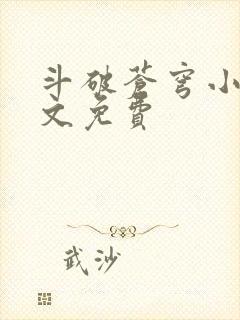 斗破苍穹小
文免費
武沙